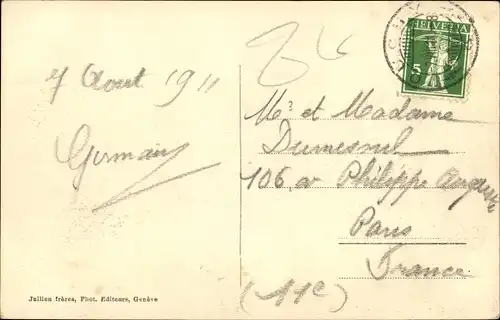 HELVETIA
5
7 Aout 1911
Germain
Mr et Madame
Dumesnil
106, av Philippe Auguste
Paris
France
(11e)
Jullien frères, Phot. Editeurs, Genève